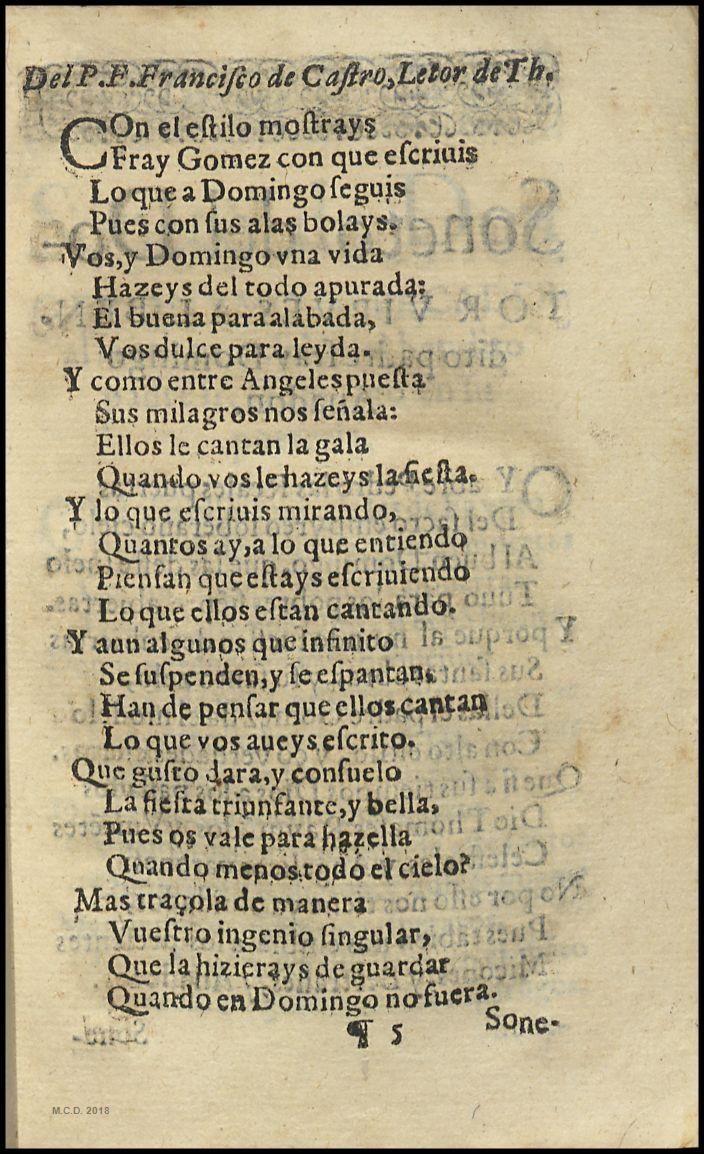 Del P.F.Franciſco de Caſtro,Letor de Th.
COn el eſtilo moſtrays
Fray Gomez con que eſcriuis
Lo que a Domingo ſeguis
Pues con ſus alas bolays.
Vos,y Domingo vna vida
Hazeys del todo apurada:
El buena para alabada,
Vos dulce para leyda.
Y como entre Angeles pueſta
Sus milagros nos ſeñala:
Ellos le cantan la gala
Quando vos le hazeys la fieſta.
Y lo que eſcriuis mirando,
Quantos ay,a lo que entiendo
Pienſan que eſtays eſcriuiendo
Lo que ellos eſtan cantando.
Y aun algunos que infinito
Se ſuſpenden,y ſe eſpantan,
Han de penſar que ellos cantan
Lo que vos aueys eſcrito.
Que guſto dara,y conſuelo
La fieſta triunfante,y bella,
Pues os vale para hazella
Quando menos todo el cielo?
Mas traçola de manera
Vueſtro ingenio ſingular,
Que la hizierays de guardar
Quando en Domingo no fuera.
¶ 5 Sone-
M.C.D. 2018